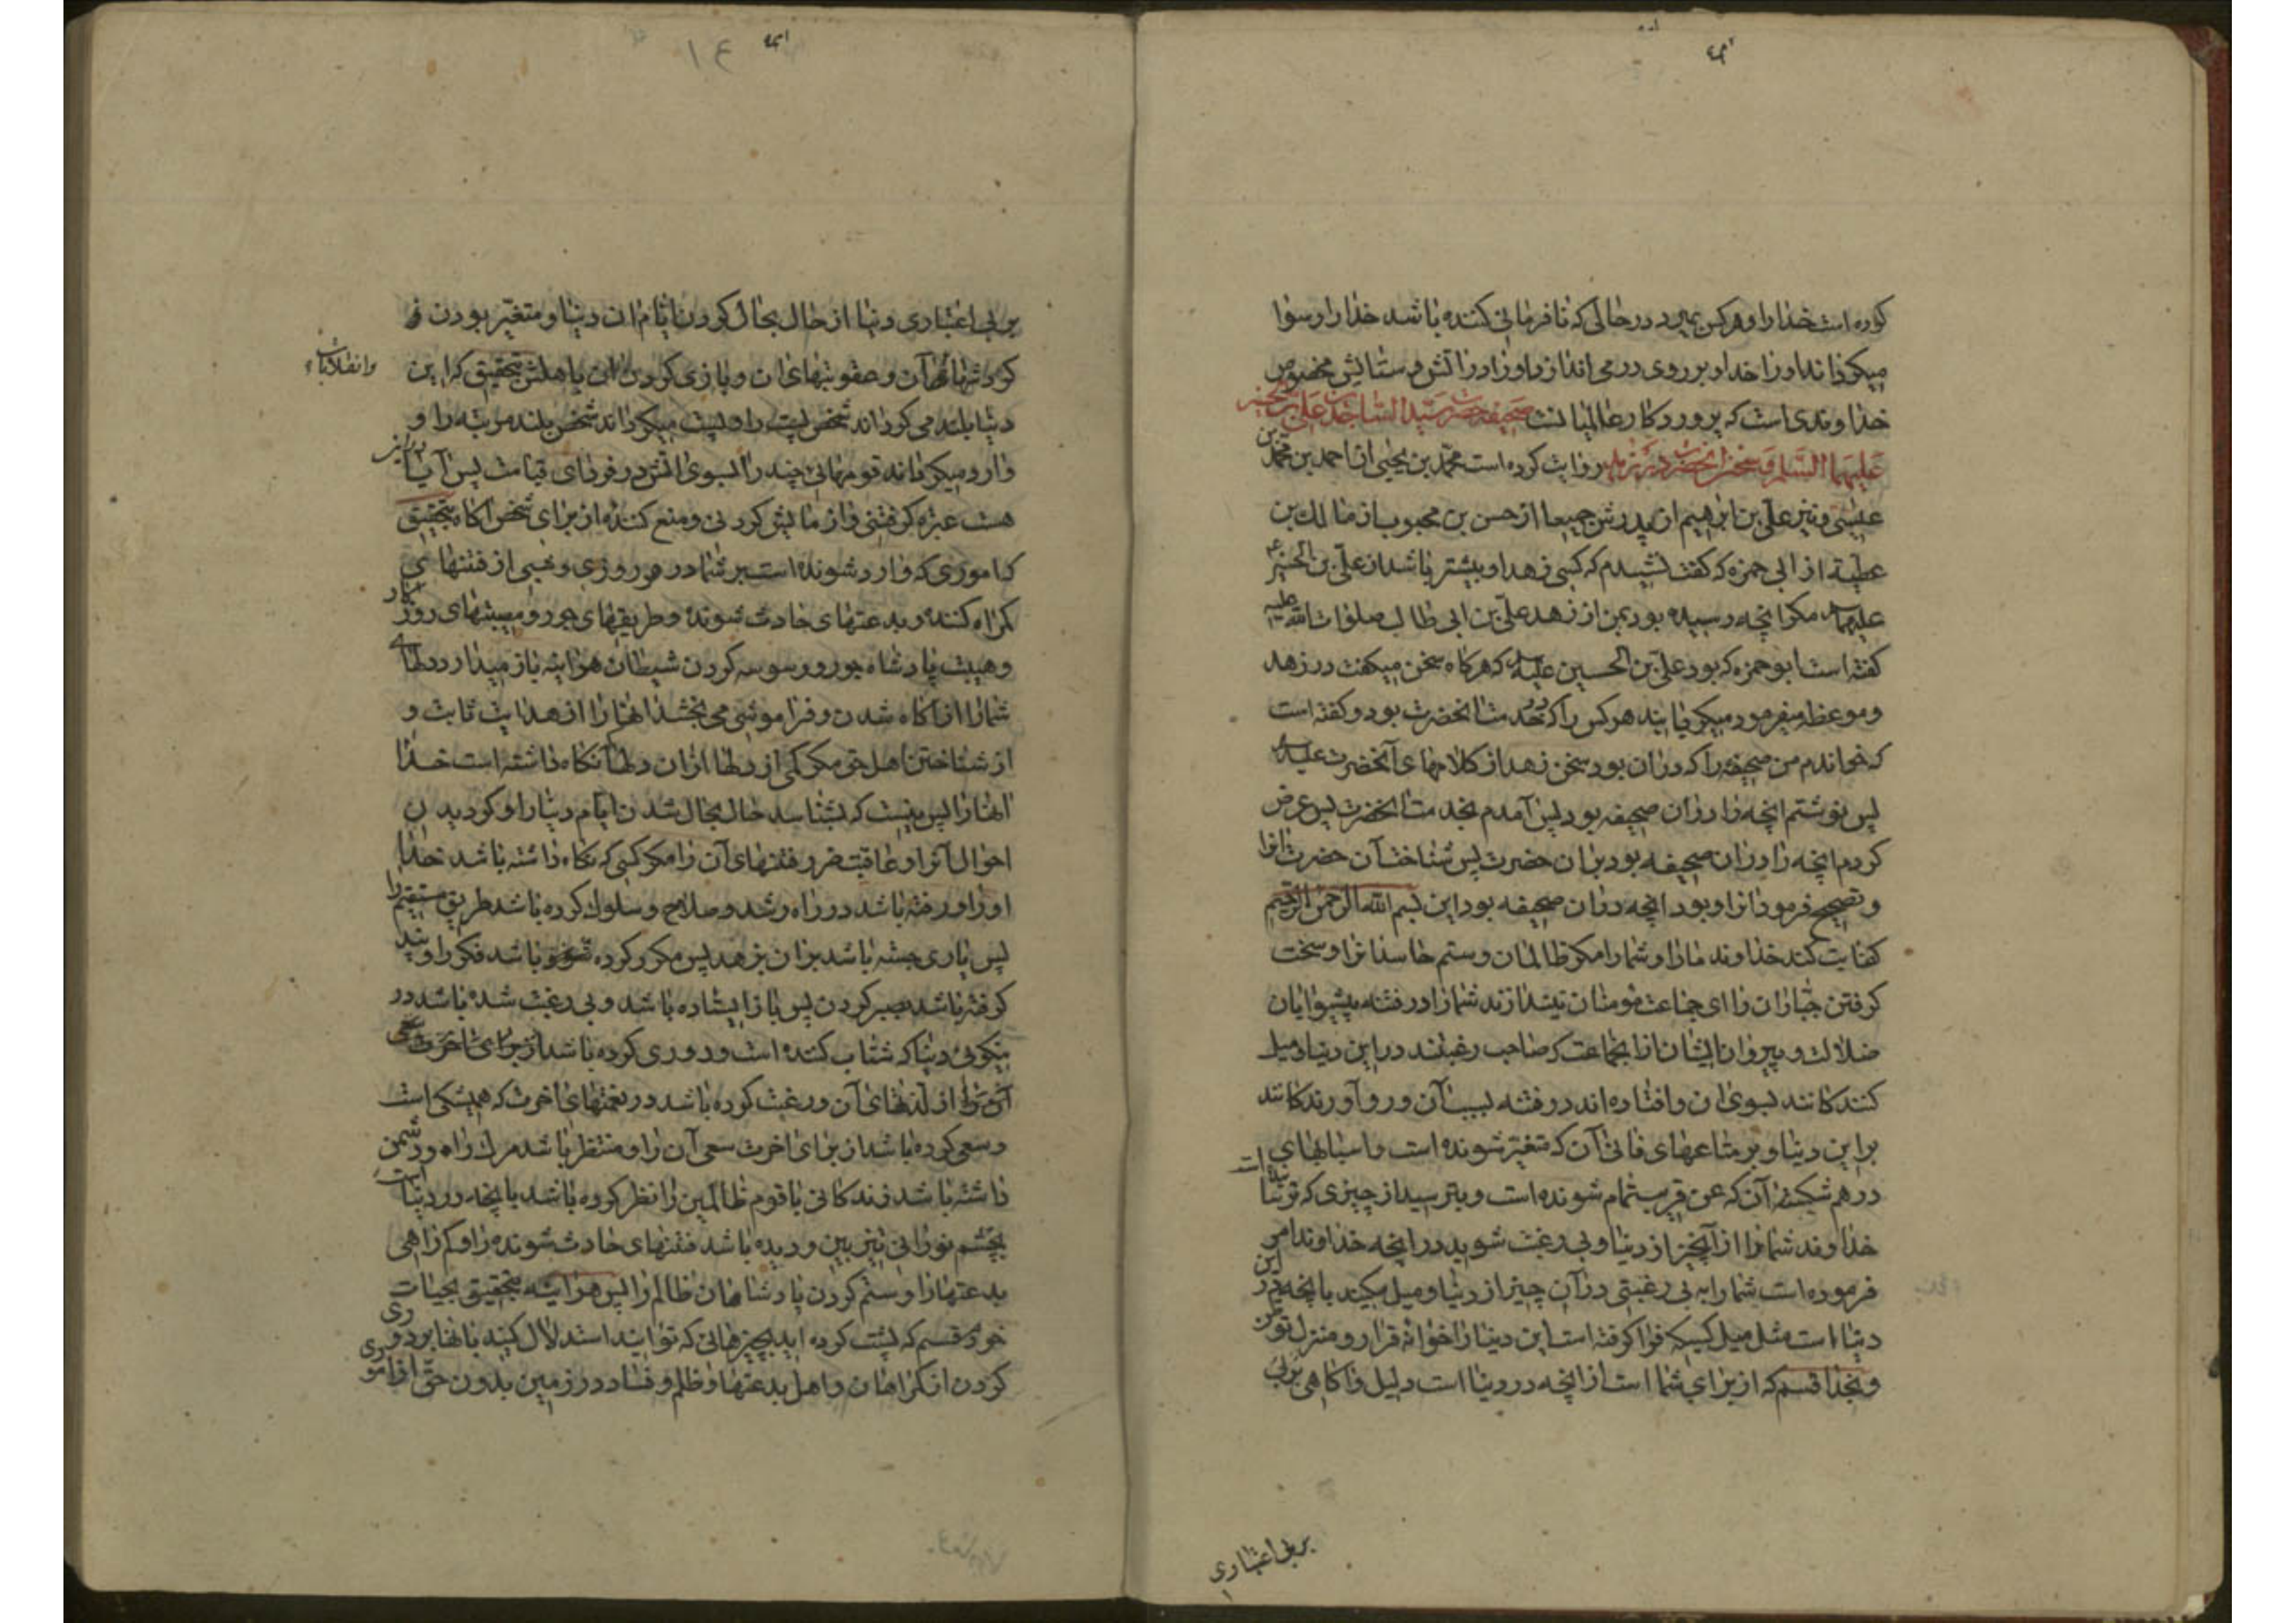 کرده است خدا را و هر کس بمیرد در حالی که نافرمانی کننده باشد خدا را رسوا
میکرداند او را خدا و بر روی در می اندازد او را در آتش و ستایش مخصوص
خداوندی است که پروردکار عالمیانست صحیفه حضرت سید الساجدین علی بن الحسین
علیهما السلام و سخن آنحضرت در زهد روایت کرده است محمد بن یحیی از احمد بن محمد بن
عیسی و نیز علی بن ابرهیم از پدرش جمیعا از حسن بن محبوب از مالک بن
عطیة از ابی حمزه که کفت نشیندم که کسی زهد او بیشتر باشد از علی بن الحسین
علیهما مکر انچه رسیده بود بمن از زهد علی بن ابی طالب صلوات الله علیه
کفته است ابو حمزه که بود علی بن الحسین علیه که هرکاه سخن میکفت در زهد
و موعظه میفرمود میکریانید هر کس را که در خدمت انحضرت بود و کفته است
که خواندم من صحیفه را که در ان بود سخن زهد از کلامهای آنحضرت علیه
پس نوشتم انچه را در ان صحیفه بود پس آمدم بخدمت انحضرت پس عرض
کردم انچه را در ان صحیفه بود بر ان حضرت پس شناخت آن حضرت انرا
و تصحیح فرمود انرا و بود انچه در ان صحیفه بود این بسم الله الرحمن الرحیم
کفایت کند خداوند ما را و شما را مکر ظالمان و ستم حاسدانرا و سخت
کرفتن جباران را ای جماعت مومنان نیندازند شما را در فتنه پیشوایان
ضلالت و پیروان ایشان از انجماعت که صاحب رغبتند در این دنیا و میل
کنندکانند بسوی ان و افتاده اند در فتنه بسبب آن و رو آورندکانند
بر این دنیا و بر متاعهای فانی آن که متغیر شونده است و اسبابهای
در هم شکسته آن که عن قریب تمام شونده است و بترسید از چیزی که ترسانیده است
خداوند شما را از آنچیز از دنیا و بی رغبت شوید در انچه خداوند امر
فرموده است شما را به بی رغبتی در آن چیز از دنیا و میل مکنید بانچه در این
دنیا است مثل میل کسیکه فرا کرفته است این دنیا را خوانه قرار و منزل توطن
و بخدا قسم که از برای شما است از انچه در دنیا است دلیل و اکاهی بر بی
بر بی اعتباری
بر بی اعتباری دنیا از حال بحال کردن ایام ان دنیا و متغیر بودن و
کردشهای آن و عقوبتهای ان و بازی کردن ان باهلش بتحقیق که این
وانقلابات
دنیا بلند می کرداند شخص پست را و پست میکرداند شخص بلند مرتبه را و
وارد میکرداند قومهائی چند را بسوی اتش در فردای قیامت پس آیا در این
هست عبره کرفتنی و ازمایش کردنی و منع کننده از برای شخص اکاه بتحقیق
که اموری که وارد شونده است بر شما در هر روزی و شبی از فتنهای
کمراه کننده و بدعتهای حادث شونده و طریقهای جور و مصیبتهای روزکار
و هیبت پادشاه جور و وسوسه کردن شیطان هر اینه باز میدارد دلهای
شما را از اکاه شدن و فراموشی می بخشد انها را از هدایت ثابت و
از شناختن اهل حق مکر کمی از دلها از ان دلها نکاه داشته است خدا
انها را پس نیست که بشناسد حال بحال شدن ایام دنیا را و کردیدن
احوال آنرا و عاقبت ضرر فتنهای آن را مکر کسی که نکاه داشته باشد خدا
او را و رفته باشد در راه رشد و صلاح و سلوک کرده باشد طریق مستقیم را
پس یاری جسته باشد بر ان بزهد پس مکرر کرده باشد فکر را و پند
کرفته باشد بصبر کردن پس باز ایستاده باشد و بی رغبت شده باشد در
نیکوئی دنیا که شتاب کننده است و دوری کرده باشد
از لذتهای آن و رغبت کرده باشد در نعمتهای اخرت که همیشکی است
و سعی کرده باشد از برای اخرت سعی آن را و منتظر باشد مرک را و دشمن
داشته باشد زندکانی با قوم ظالمین را نظر کرده باشد بانچه در دنیا است
بچشم نورانی تیزبین و دیده باشد فتنهای حادث شونده را و کمراهی
بدعتها را و ستم کردن پادشاهان ظالم را پس هر اینه بتحقیق بحیات
خودم قسم که پشت کرده اید بچیزهائی که توانید استدلال کنید بانها بر دوری
کردن از کمراهان و اهل بدعتها و ظلم و فساد در زمین بدون حق